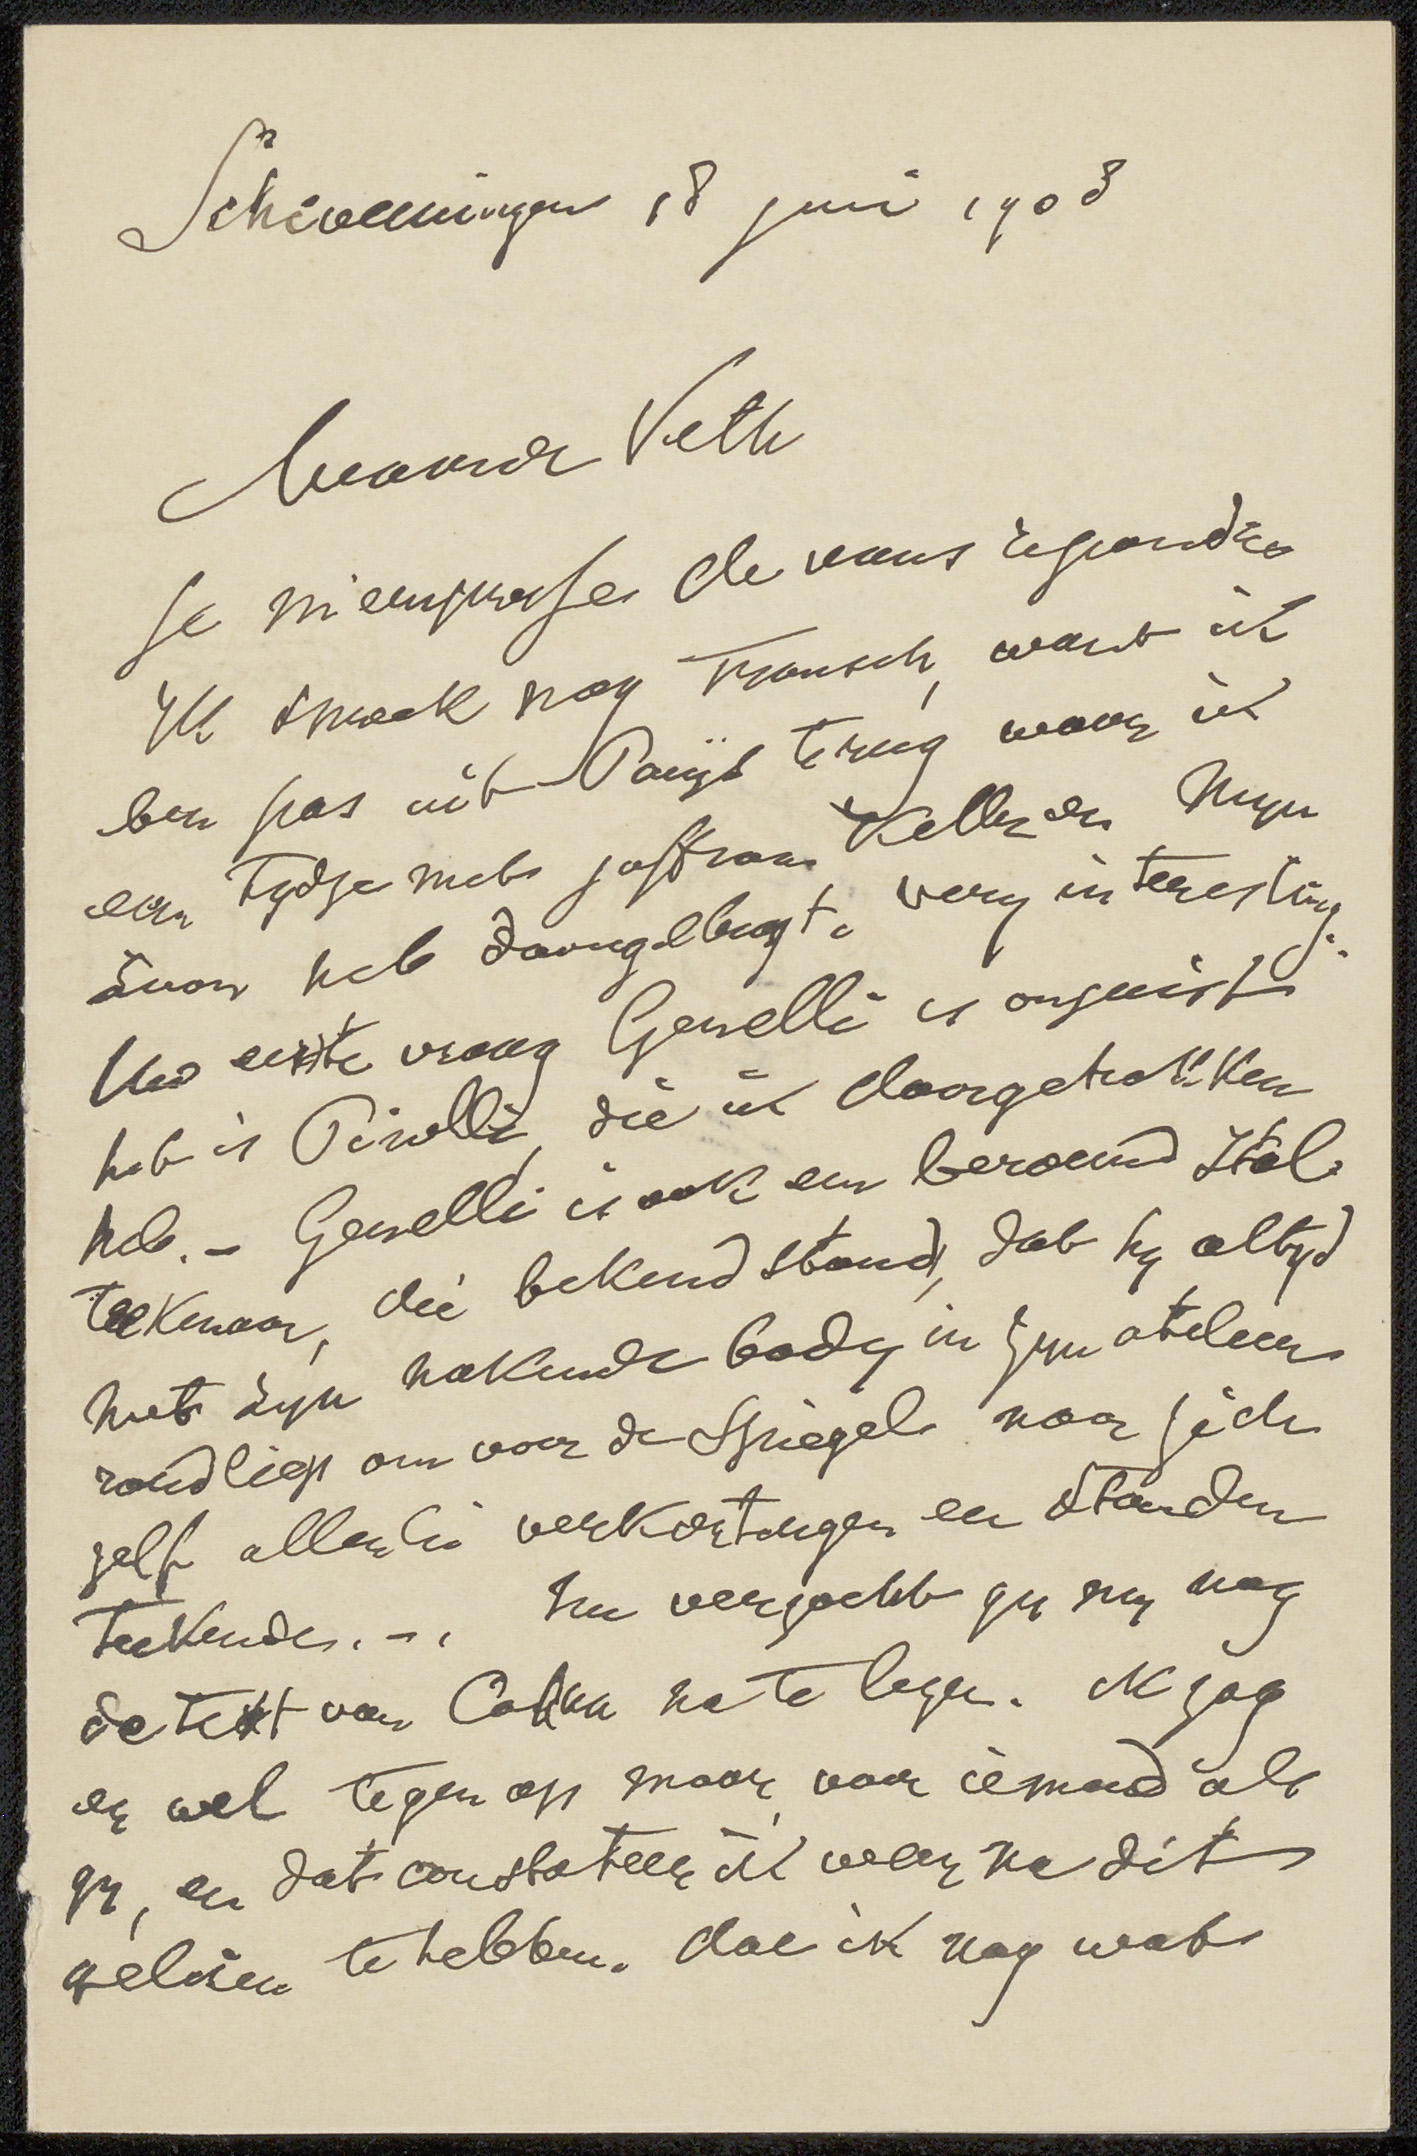 Scheveningen 18 juni 1903
Waarde Veth
Je m'empresse de vous repondre
Ik spreek nog Fransch, want ik
ben pas uit Parijs terug waar ik
een tydje met joffrouw Keller en myn
zwon heb doorgebragt. very interesting.
Uw eerste vraag Genelli is onjuist
het is Pinelli, die ik doorgetrokken
heb. – Genelli is ook een beroemd Ital
teekenaar, die bekend stond, dat hy altyd
met zyn nakende body in zyn atelier
rondliep om voor de Spiegel naar zich
zelf allerlei verkortingen en standen
teekende. – . Nu verzocht gy my nog
de text van Cohen na te lezen. Ik zag
er wel tegen op maar voor iemand als
gy, en dat constateer ik weer na dit
gelezen te hebben. doe ik nog wat